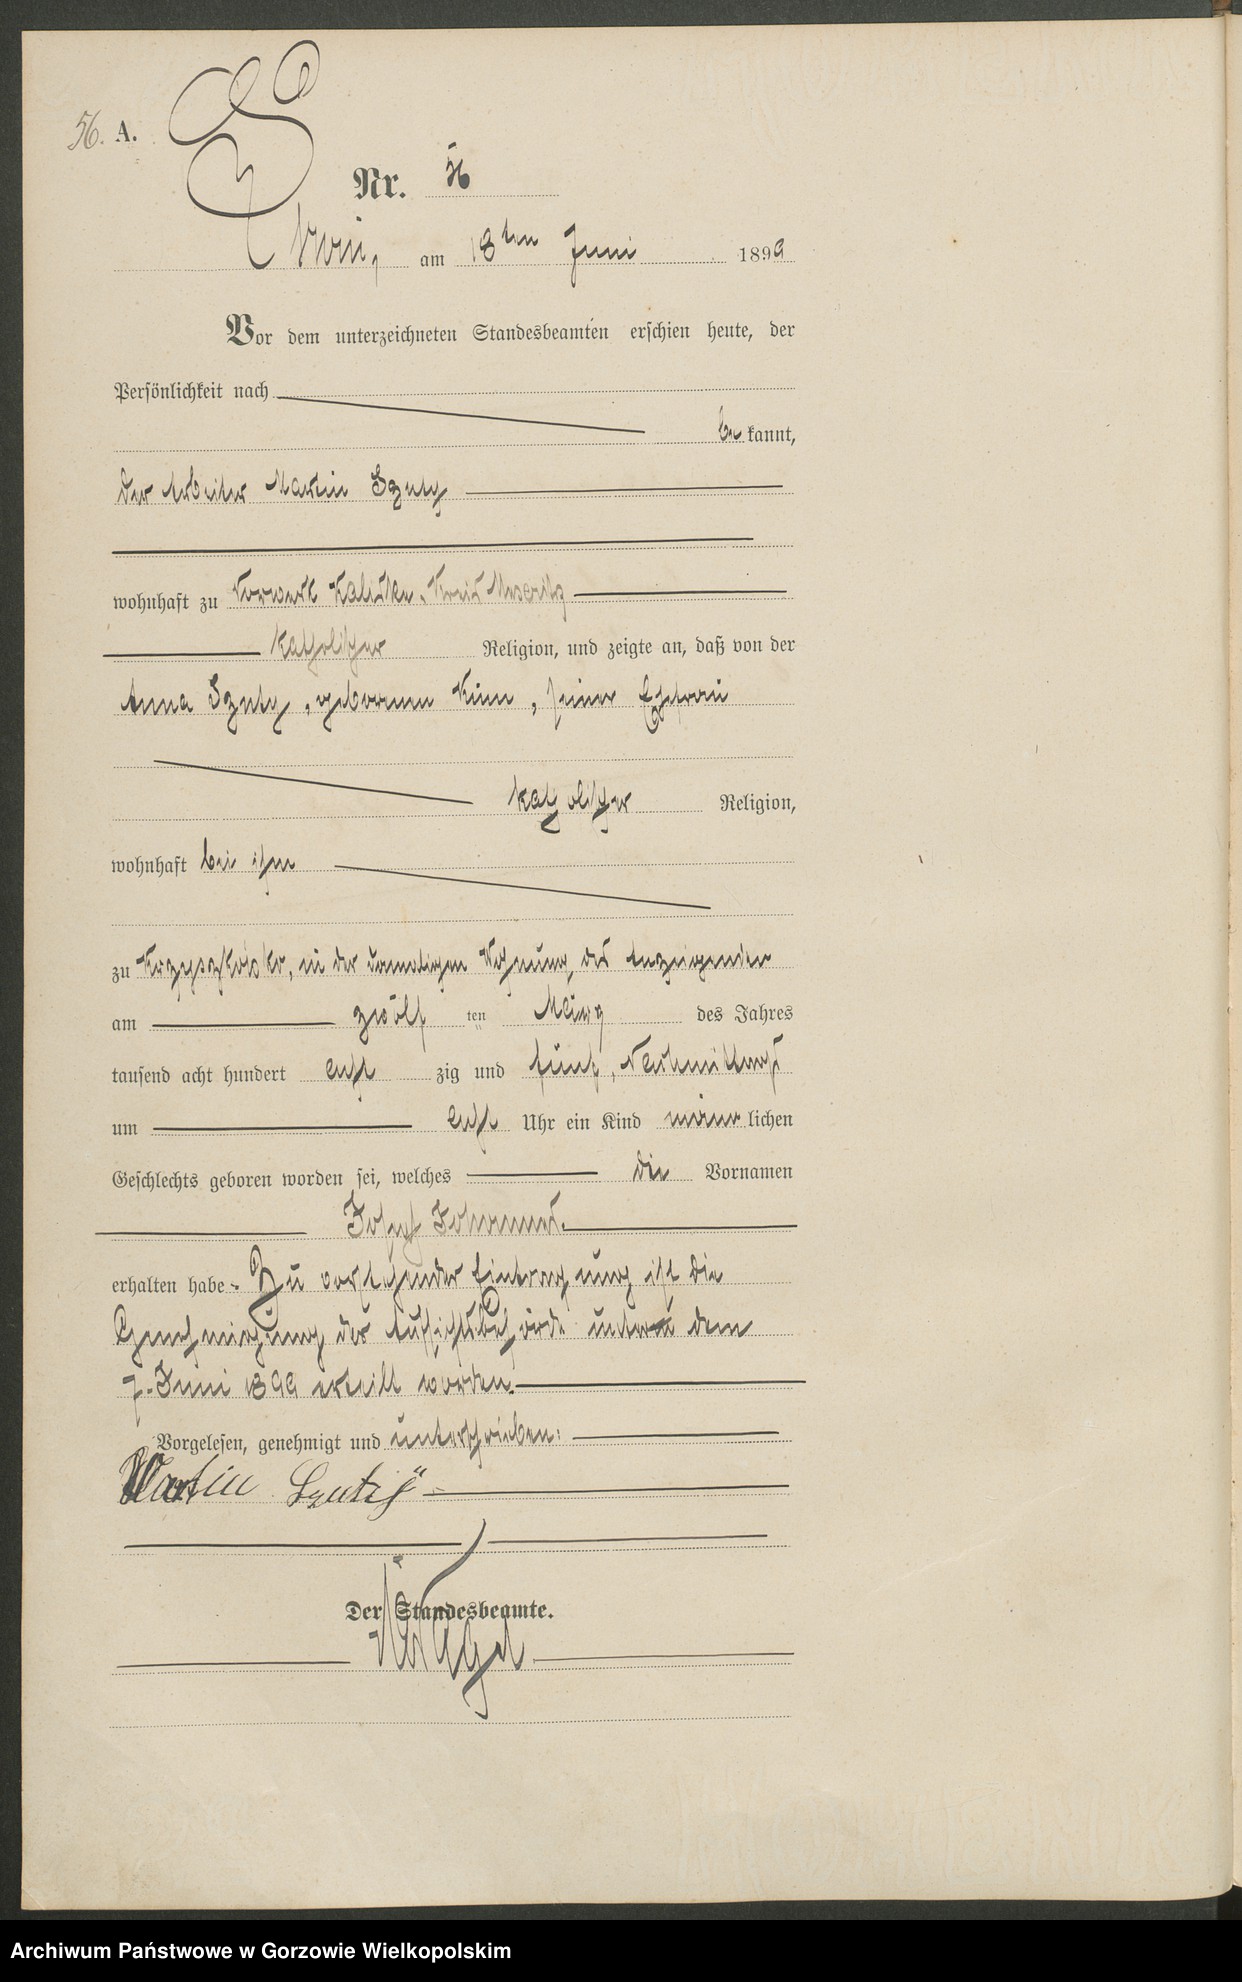 56. A.
Nr. 56
am 18ten Juni 1899
Vor dem unterzeichneten Standesbeamten erschien heute, der
Persönlichkeit nach
be kannt,
der Arbeiter Martin Szuty
wohnhaft zu Vorwerk Kalisko, Kreis Meseritz
katholischer Religion, und zeigte an, daß von der
Anna Szuty, geborenen, seiner Ehefrau
katholischer Religion,
wohnhaft bei ihm
zu in der damaligen Wohnung des Anzeigenden
am zwölf ten März des Jahres
tausend acht hundert acht zig und fünf, Nachmittags
um acht Uhr ein Kind männ lichen
Geschlechts geboren worden sei, welches die Vornamen
Josef Johannes
erhalten habe. Zu vorstehender Eintragung ist die
Genehmigung der Aufsichtsbehörde unterm dem
7. Juni 1899 erteilt worden.
Vorgelesen, genehmigt und unterschrieben:
Martin
Der Standesbeamte.
Archiwum Państwowe w Gorzowie Wielkopolskim